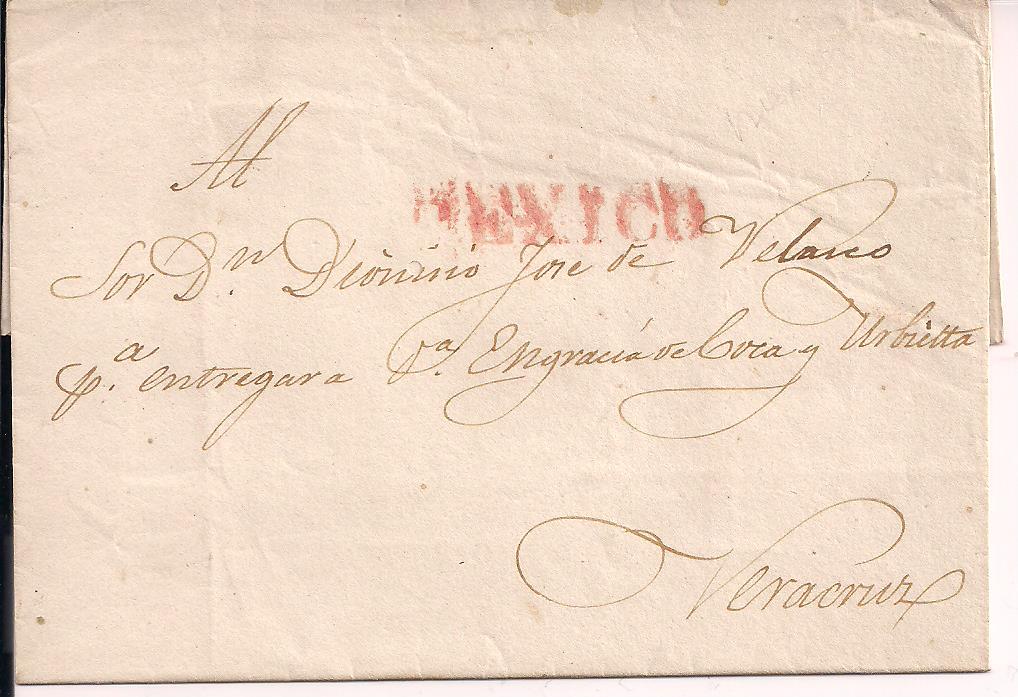 Al
MEXICO
Sor Dn. Dionisio Jose de Velasco
pa. entregar a Da. Engracia de Coca y Urbietta
Veracruz